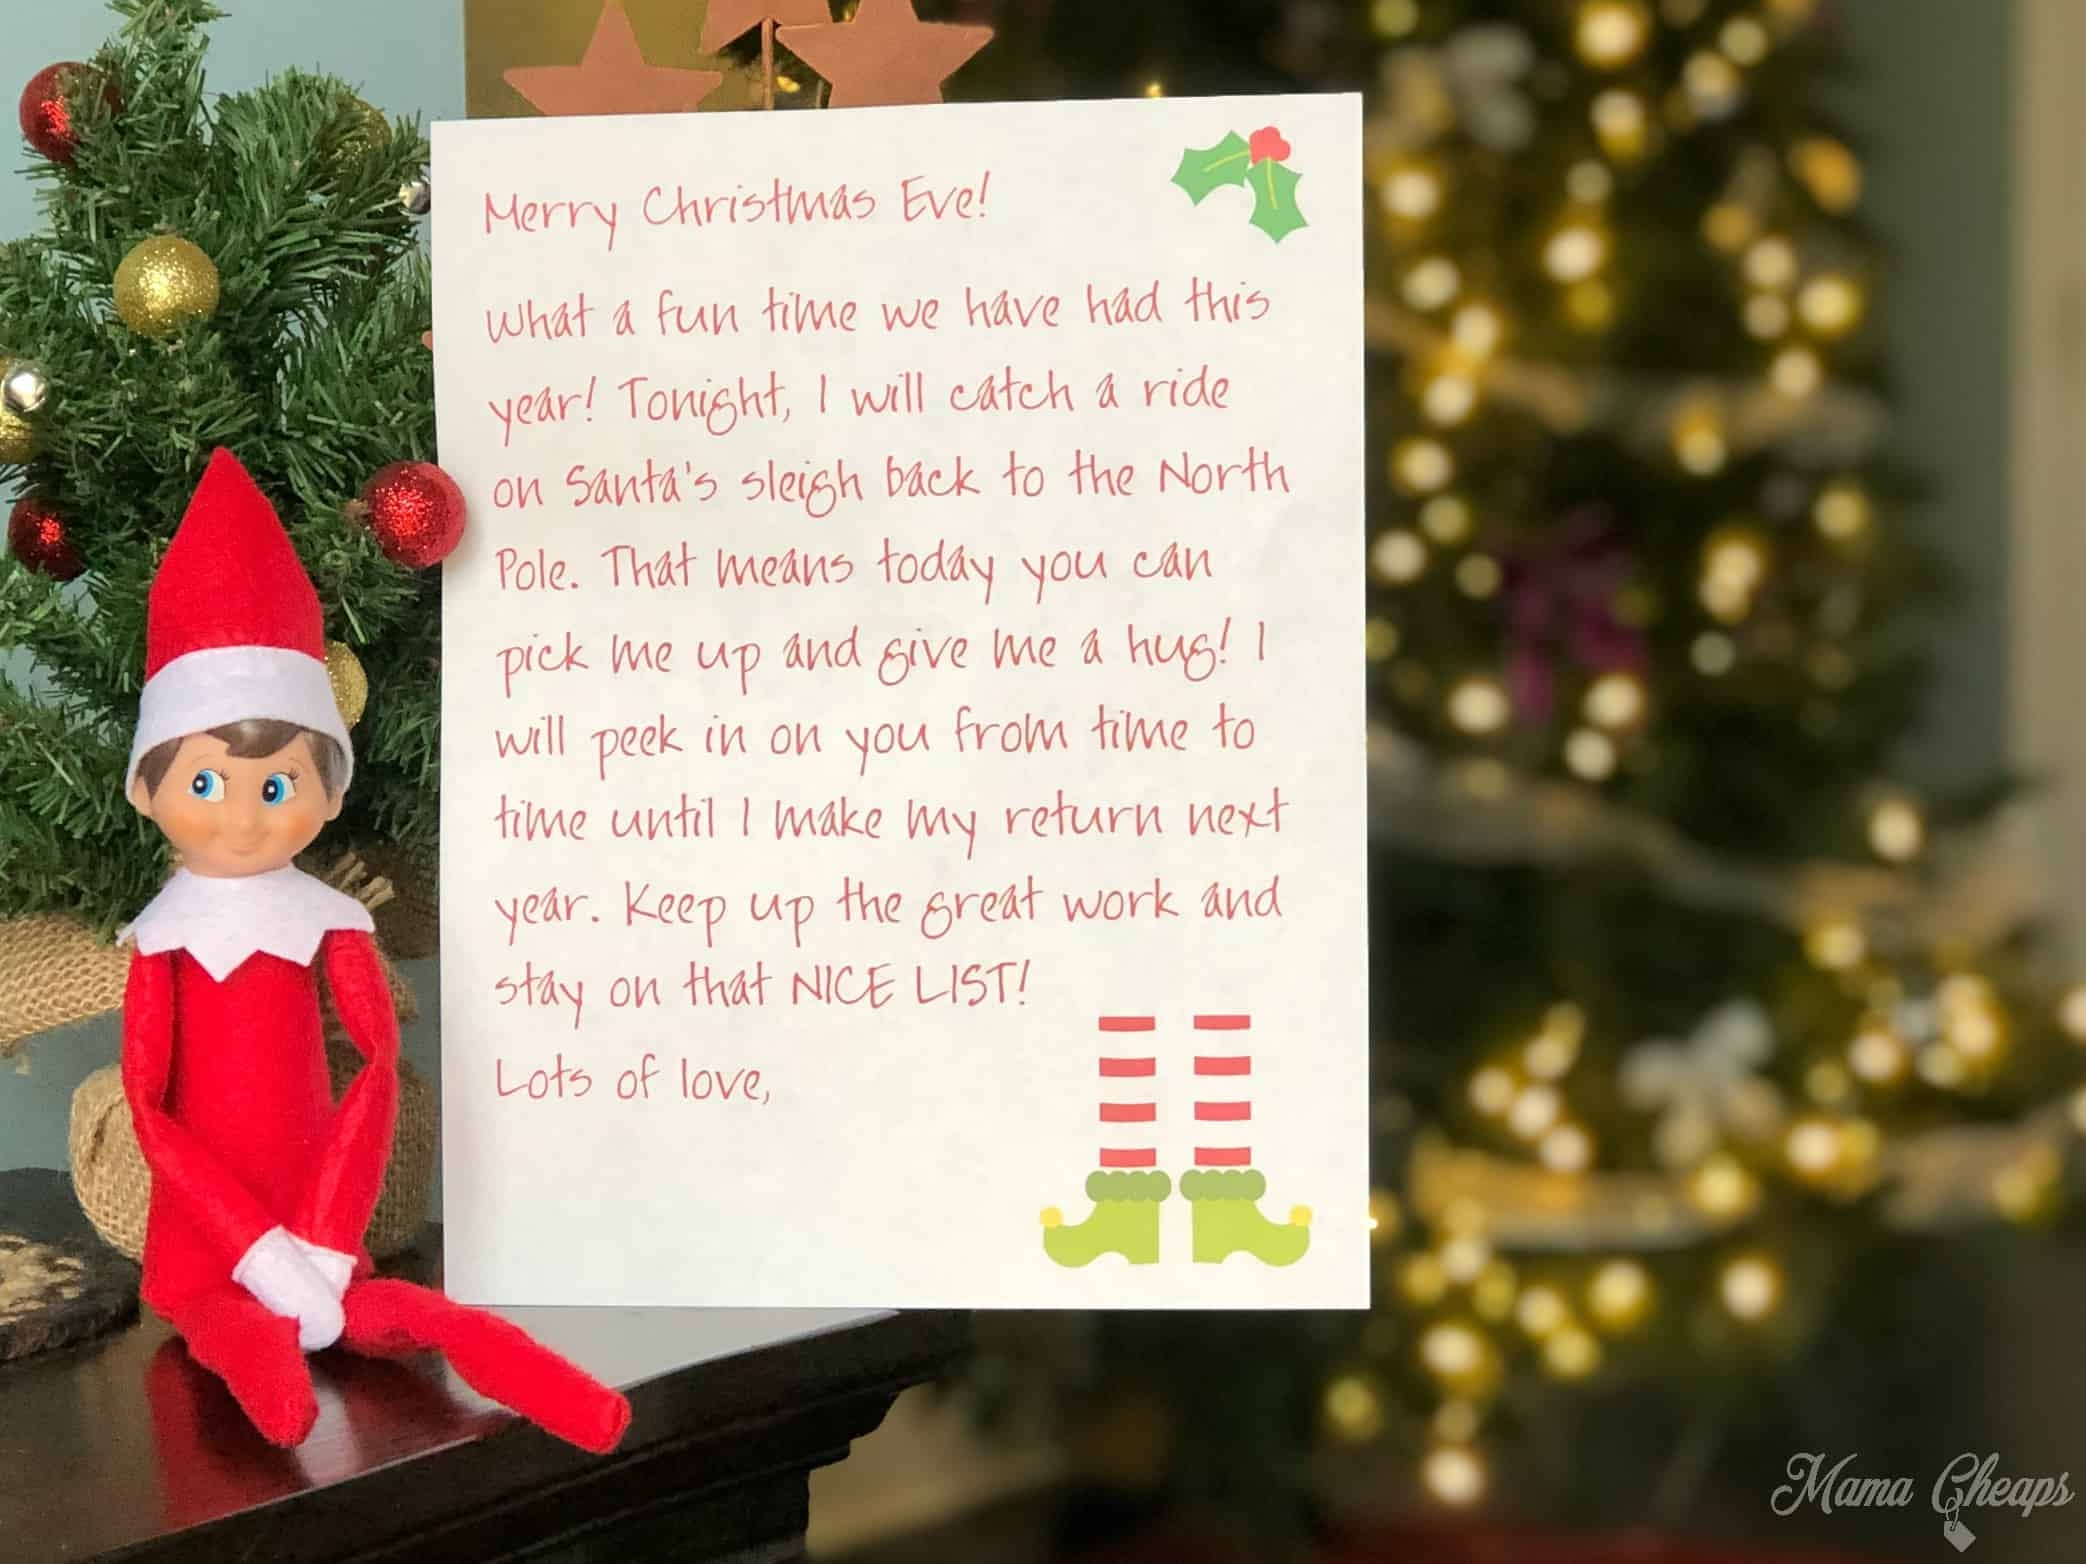 Merry Christmas Eve!
What a fun time we have had this
year! Tonight, I will catch a ride
on Santa's sleigh back to the North
Pole. That means today you can
pick me up and give me a hug! I
will peek in on you from time to
time until I make my return next
year. Keep up the great work and
stay on that NICE LIST!
Lots of love,
Mama Cheaps